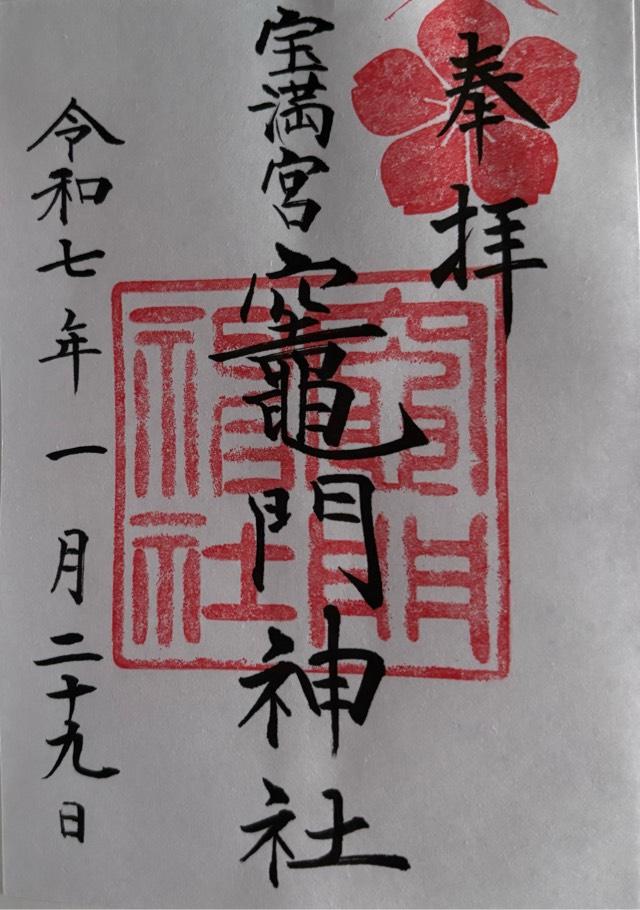 奉拝
宝満宮竈門神社
竈門神社
令和七年一月二十九日